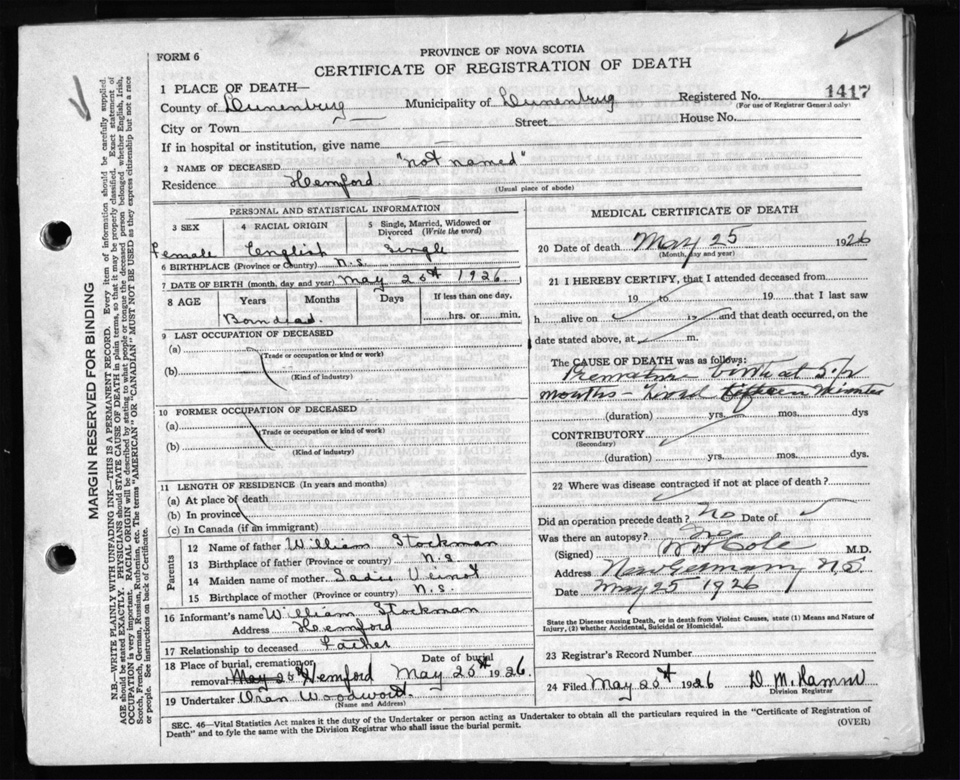 PROVINCE OF NOVA SCOTIA
FORM 6
CERTIFICATE OF REGISTRATION OF DEATH
1 PLACE OF DEATH—
County of Lunenburg Municipality of Lunenburg Registered No. 1417
(For use of Registrar General only)
City or Town Street House No.
If in hospital or institution, give name
2 NAME OF DECEASED "not named"
Residence Hemford
(Usual place of abode)
PERSONAL AND STATISTICAL INFORMATION
3 SEX 4 RACIAL ORIGIN 5 Single, Married, Widowed or
Divorced (Write the word)
Female English Single
6 BIRTHPLACE (Province or Country) N.S.
7 DATE OF BIRTH (month, day and year) May 25th 1926
8 AGE Years Months Days If less than one day,
hrs. or min.
Born dead.
9 LAST OCCUPATION OF DECEASED
(a)
(Trade or occupation or kind or work)
(b)
(Kind of industry)
10 FORMER OCCUPATION OF DECEASED
(a)
(Trade or occupation or kind of work)
(b)
(Kind of industry)
11 LENGTH OF RESIDENCE (In years and months)
(a) At place of death
(b) In province
(c) In Canada (if an immigrant)
Parents
12 Name of father William Stockman
13 Birthplace of father (Province or country) N.S.
14 Maiden name of mother Sadie Veinot
15 Birthplace of mother (Province or country) N.S.
16 Informant's name William Stockman
Address Hemford
17 Relationship to deceased Father
18 Place of burial, cremation or Date of burial
removal May 25th Hemford May 25th 1926.
19 Undertaker Oran Woodwort.
(Name and Address)
MEDICAL CERTIFICATE OF DEATH
20 Date of death May 25 1926
(Month, day and year)
21 I HEREBY CERTIFY, that I attended deceased from
19 to 19 that I last saw
h alive on 19 and that death occurred, on the
date stated above, at m.
The CAUSE OF DEATH was as follows:
Premature birth at
months – lived fifteen minutes
(duration) yrs. mos. dys
CONTRIBUTORY
(Secondary)
(duration) yrs. mos. dys.
22 Where was disease contracted if not at place of death?
Did an operation precede death? No Date of
Was there an autopsy? No
(Signed) Cole M.D.
Address New Germany N.S.
Date May 25 1926
State the Disease causing Death, or in death from Violent Causes, state (1) Means and Nature of
Injury, (2) whether Accidental, Suicidal or Homicidal.
23 Registrar's Record Number
24 Filed May 25th 1926
Division Registrar
SEC. 46—Vital Statistics Act makes it the duty of the Undertaker or person acting as Undertaker to obtain all the particulars required in the "Certificate of Registration of
Death" and to fyle the same with the Division Registrar who shall issue the burial permit. (OVER)
MARGIN RESERVED FOR BINDING
N.B.—WRITE PLAINLY WITH UNFADING INK—THIS IS A PERMANENT RECORD. Every item of information should be carefully supplied.
AGE should be stated EXACTLY. PHYSICIANS should STATE CAUSE OF DEATH in plain terms, so that it may be properly classified. Exact statement of
OCCUPATION is very important. RACIAL ORIGIN will be described by stating to what people or tongue the deceased person belonged whether English, Irish,
Scotch, French, German, Russian, Ruthenian, etc. The terms "AMERICAN" OR "CANADIAN" MUST NOT BE USED as they express citizenship but not a race
or people. See instructions on back of Certificate.